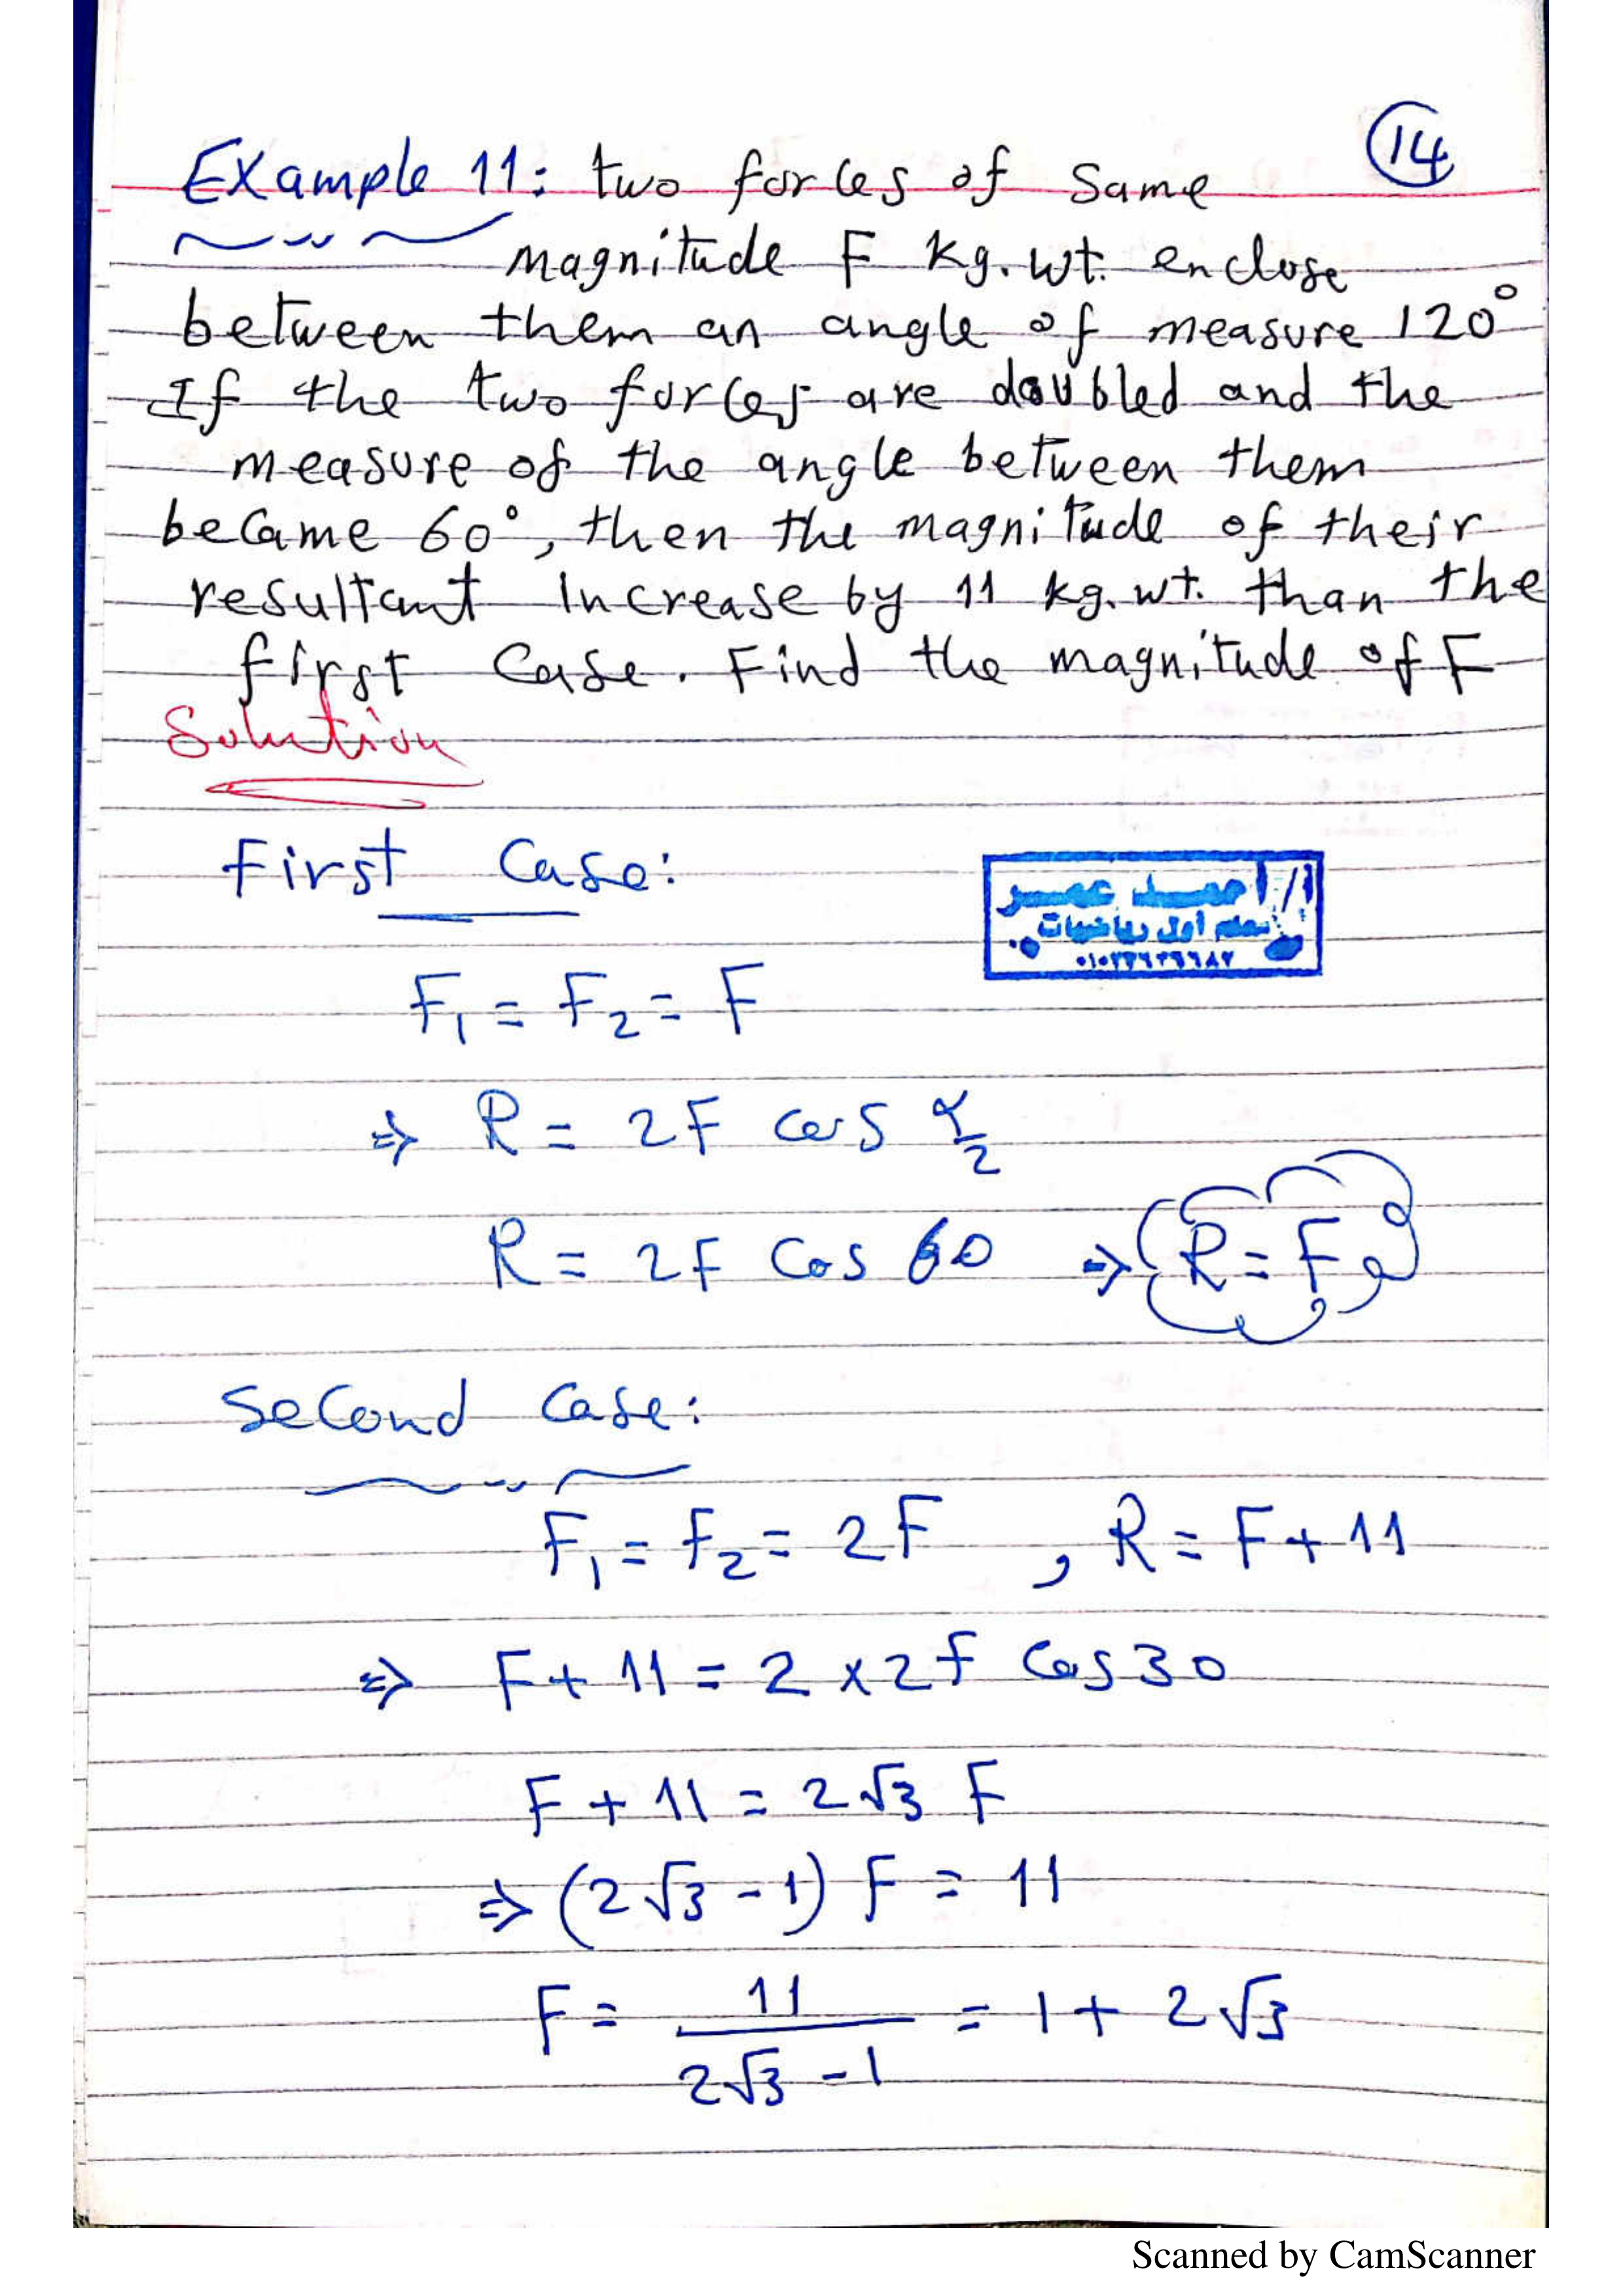 14
Example 11: two forces of same
magnitude F kg.wt. enclose
between them an angle of measure 120°
If the two forces are doubled and the
measure of the angle between them
became 60°, then the magnitude of their
resultant increase by 11 kg.wt. than the
first case. Find the magnitude of F
Solution
First case:
أ/ أحمد عمر
معلم أول رياضيات
F₁ = F₂ = F
⇒ R = 2F cos α/2
R = 2F cos 60 ⇒ R = F
Second case:
F₁ = F₂ = 2F , R = F + 11
⇒ F + 11 = 2 × 2F cos 30
F + 11 = 2√3 F
⇒ (2√3 - 1) F = 11
F = 11 / (2√3 - 1) = 1 + 2√3
Scanned by CamScanner